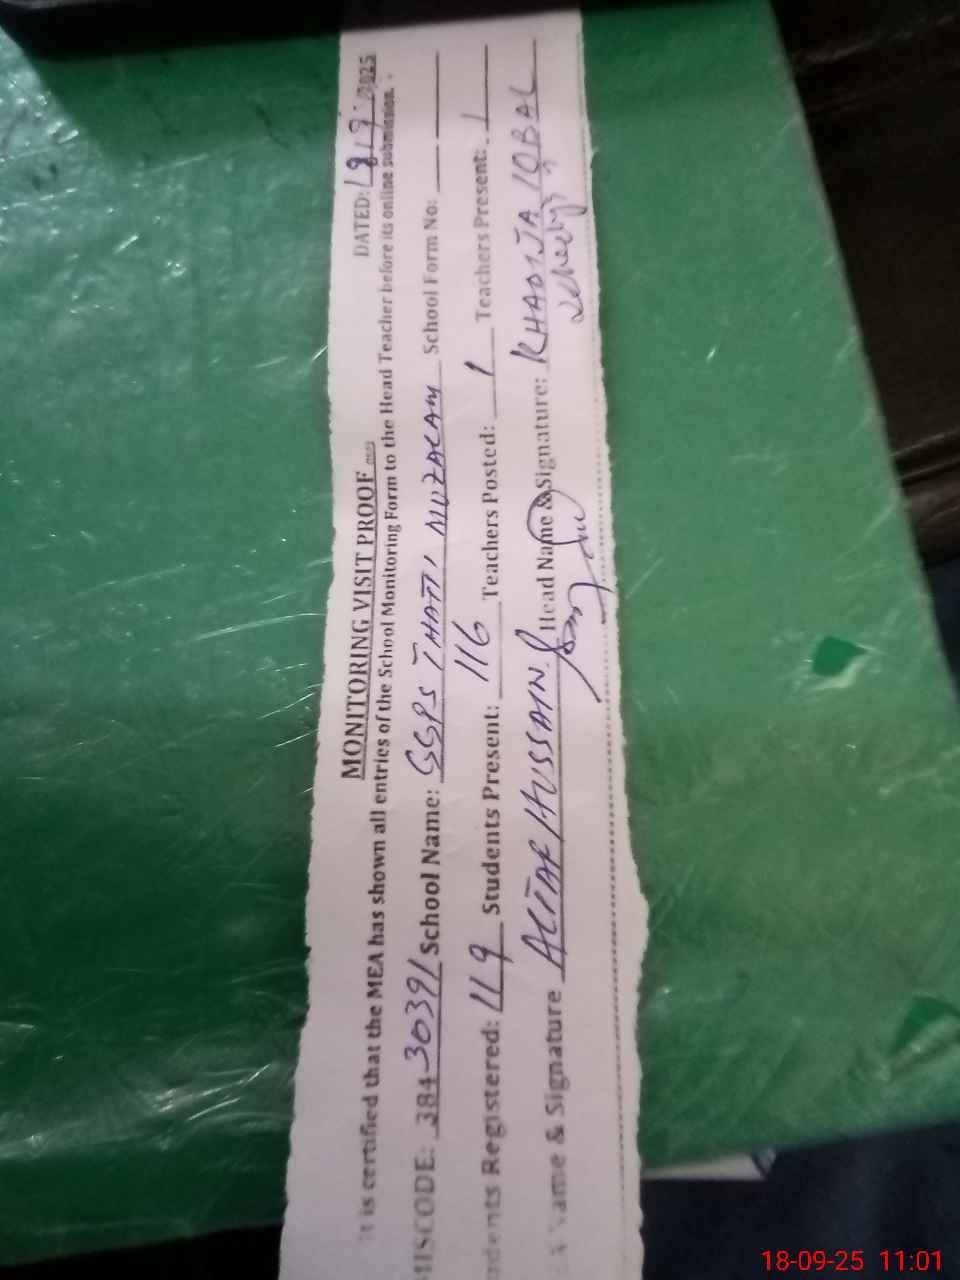 DATED: 18/9/2025
MONITORING VISIT PROOF
It is certified that the MEA has shown all entries of the School Monitoring Form to the Head Teacher before its online submission.
MISCODE: 38430391 School Name: GGPS THATTI MUZALAM School Form No:
dents Registered: 119 Students Present: 116 Teachers Posted: 1 Teachers Present: 1
Name & Signature ALTAF HUSSAIN Head Name & Signature: KHADIJA IQBAL
18-09-25 11:01